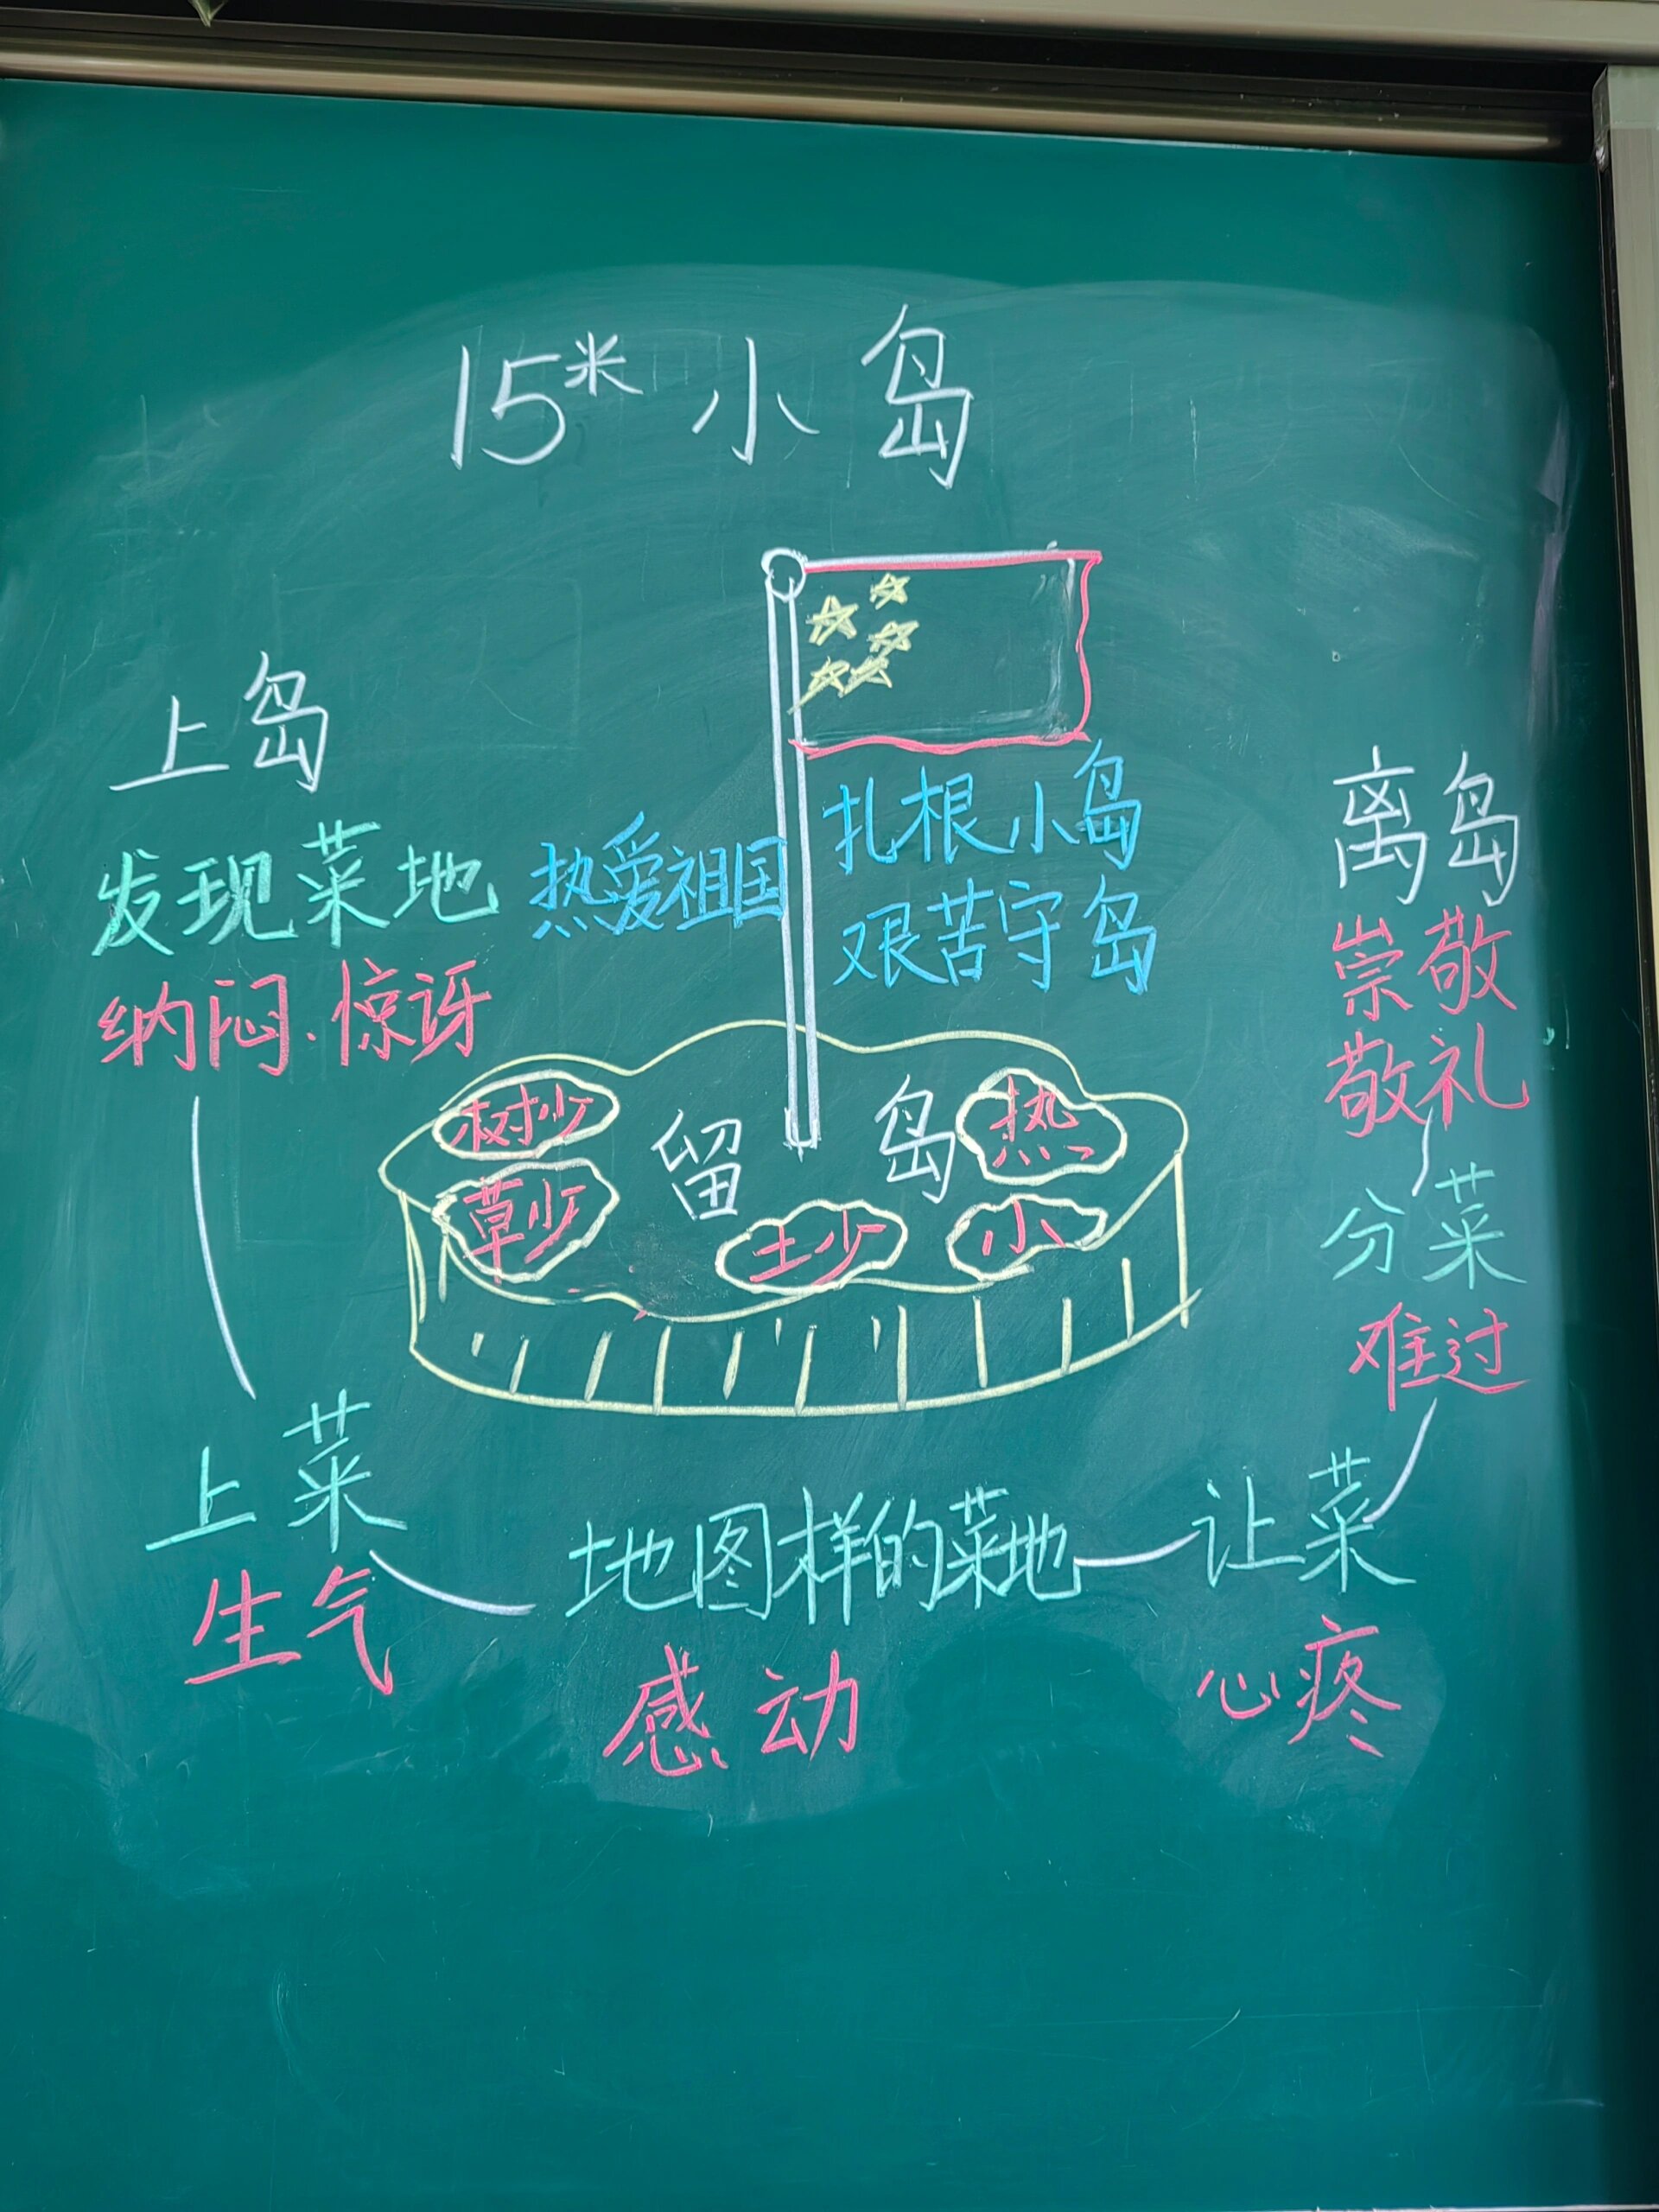 15米小岛
上岛
发现菜地
纳闷.惊讶
热爱祖国
扎根小岛
艰苦守岛
离岛
崇敬
敬礼
树少
草少
留岛
热
土少
小
分菜
难过
上菜
生气
地图样的菜地
感动
让菜
心疼